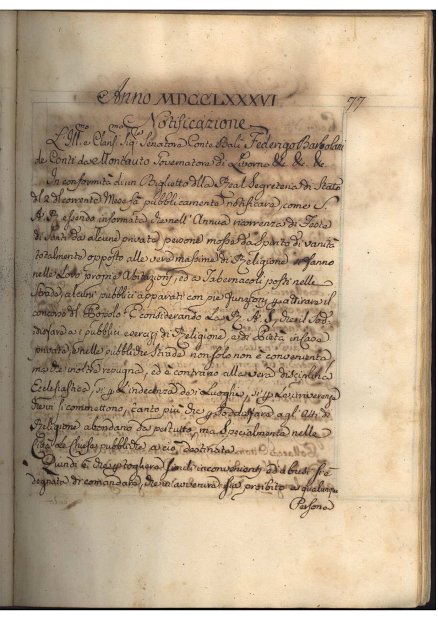 Anno MDCCLXXXVI 77
Notificazione
L'Ill.mo e Clariss. Sig. Senatore Conte Balì Federigo Barbolani
de Conti da Montauto Governatore di Livorno &c. &c. &c.
In conformità di un Biglietto della Real Segreteria di Stato
del dì corrente Mese fà pubblicamente notificare, come S.
A. R. essendo informata, che nell'Annua ricorrenza di Feste
di Santi da alcune private persone mosse da Spirito di vanità
totalmente opposto alle vere massime di Religione si fanno
nelle Loro proprie Abitazioni, ed a Tabernacoli posti nelle
Strade alcuni pubblici apparati con pie funzioni per attirare il
concorso del Popolo. E considerando La R. A. S., che il Sod-
disfare a i pubblici esercizj di Religione, e di Pietà in Case
private, e nelle pubbliche Strade non solo non è conveniente
ma che inoltre repugna, ed è contrario alla vera disciplina
Ecclesiastica, sì per l'indecenza de i Luoghi, sì per le irriverenze
che vi si commettono, tanto più che per sodisfare a gli Atti di
Religione abondano da pertutto, ma Specialmente nelle
Città le Chiese pubbliche a ciò destinate.
Quindi è che per togliere simili inconvenienti, ed abusi si è
degnata di comandare, che in avvenire sia proibito a qualunque
Persona